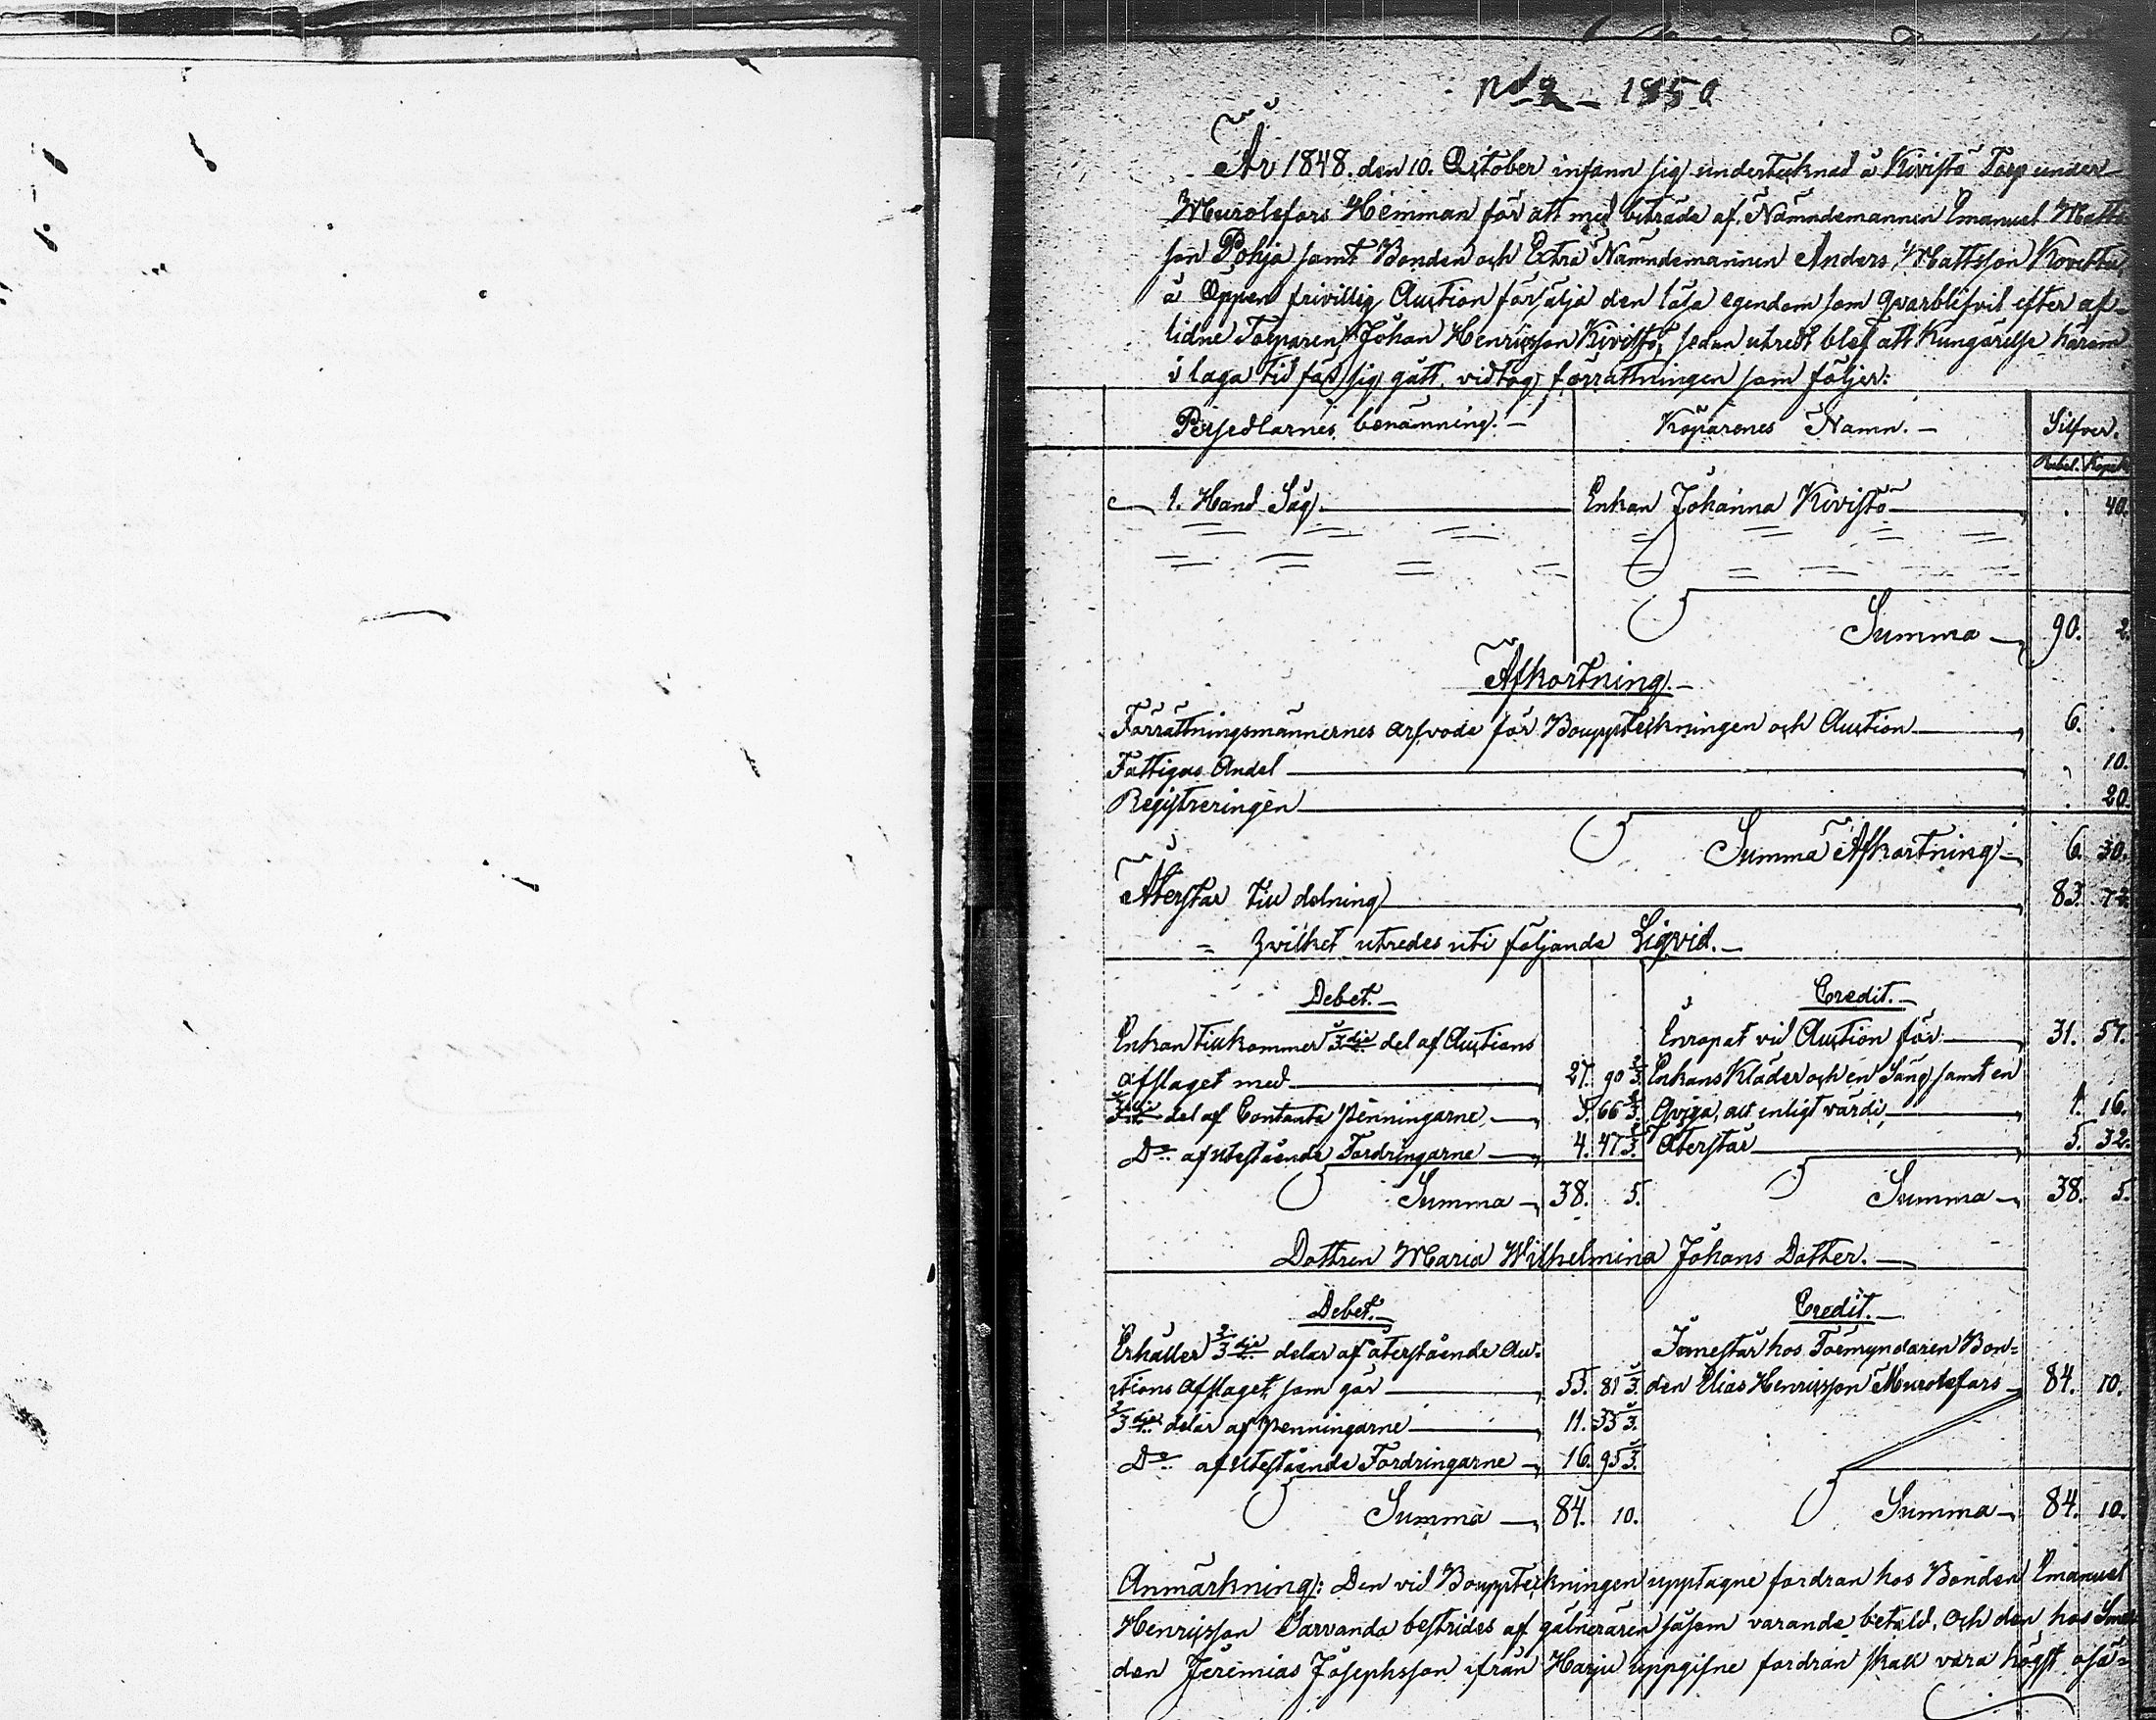 No 2 1850
År 1848. den 10. October infann sig undertecknad å Kivistö Torp under
Murolefors Hemman för att med biträde af Nämndemannen Emanuel Matts-
son Pohja samt Bonden och Extra Nämndemannen Anders Mattsson
å Öppen frivillig Auction försälja den lösa egendom som qvarblifvit efter af-
lidne Torparen Johan Henricsson Kivistö, sedan utredt blef att Kungörelse härom
i laga tid för sig gått, vidtog förrättningen som följer:
Persedlarnes benämning. Köparenes Namn. Silfver.
Rubel. Kopek
1. Hand Såg Enkan Johanna Kivistö . 40.
Summa 90. 2.
Afkortning.
Förrättningsmännernes arfvode för Bouppteckningen och Auction 6. .
Fattigas Andel . 10.
Registreringen . 20.
Summa Afkortning 6. 30.
Återstår till delning 83. 72.
hvilket utredes uti följande Liqvid.
Debet. Credit.
Enkan tillkommer 1/3dje del af Auctions Inropat vid Auction för 31. 57.
afslaget med 27. 90 2/3. Enkans Kläder och en Säng samt en
1/3dje del af Contanta penningarne 5. 66 2/3. Qviga, allt enligt värdi 1. 16.
Do af utestående Fordringarne 4. 47 2/3. Återstår 5. 32.
Summa 38. 5. Summa 38. 5.
Dottren Maria Wilhelmina Johans Dotter.
Debet. Credit.
Erhåller 2/3dje delar af återstående Au- Innestår hos Förmyndaren Bon-
ctions afslaget som gör 55. 81 1/3. den Elias Henricsson Murolefors 84. 10.
2/3dje delar af penningarne 11. 33 1/3.
Do af utestående Fordringarne 16. 95 1/3.
Summa 84. 10. Summa 84. 10.
Anmärkning: Den vid Bouppteckningen upptagne fordran hos Bonden Emanuel
Henricsson Sarvanda bestrides af gäldenären såsom varande betald, och den hos Sme-
den Jeremias Josephsson ifrån Harju uppgifne fordran skall vara högst osä-